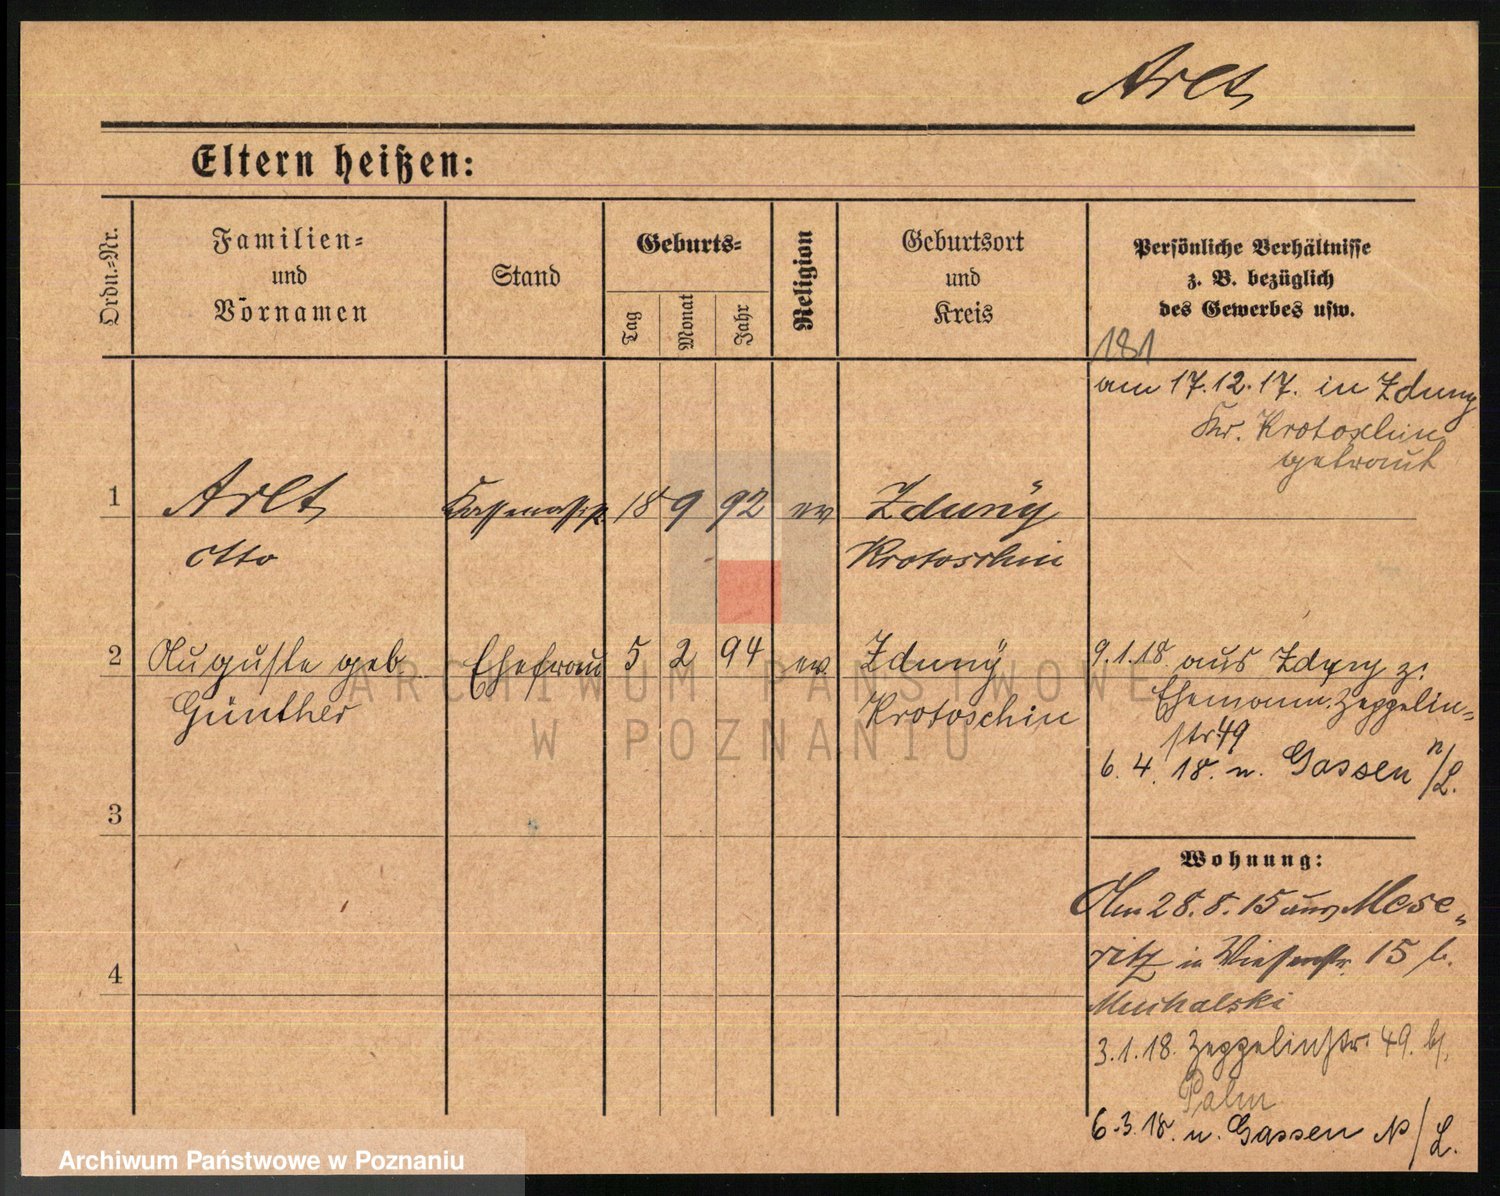 Arlt
Eltern heißen:
Ordn.-Nr.
Familien-
und
Vornamen
Stand
Geburts-
Tag
Monat
Jahr
Religion
Geburtsort
und
Kreis
Persönliche Verhältnisse
z. B. bezüglich
des Gewerbes usw.
181
am 17.12.17. in Zduny
Kr. Krotoschin
getraut
1
Arlt
Otto
18
9
92
ev
Zduny
Krotoschin
2
Auguste geb.
Günther
Ehefrau
5
2
94
ev.
Zduny
Krotoschin
9.1.18. aus Zduny z.
Ehemann. Zeppelin-
str 49
6. 4. 18. n. Gassen n/L.
3
4
Wohnung:
Am 28.8.15 aus Mese-
ritz in Wiesenstr. 15 b.
Muchalski
3.1.18. Zeppelinstr. 49. b.
Palm
6.3.18. n. Gassen N/L.
ARCHIWUM PAŃSTWOWE
W POZNANIU
Archiwum Państwowe w Poznaniu